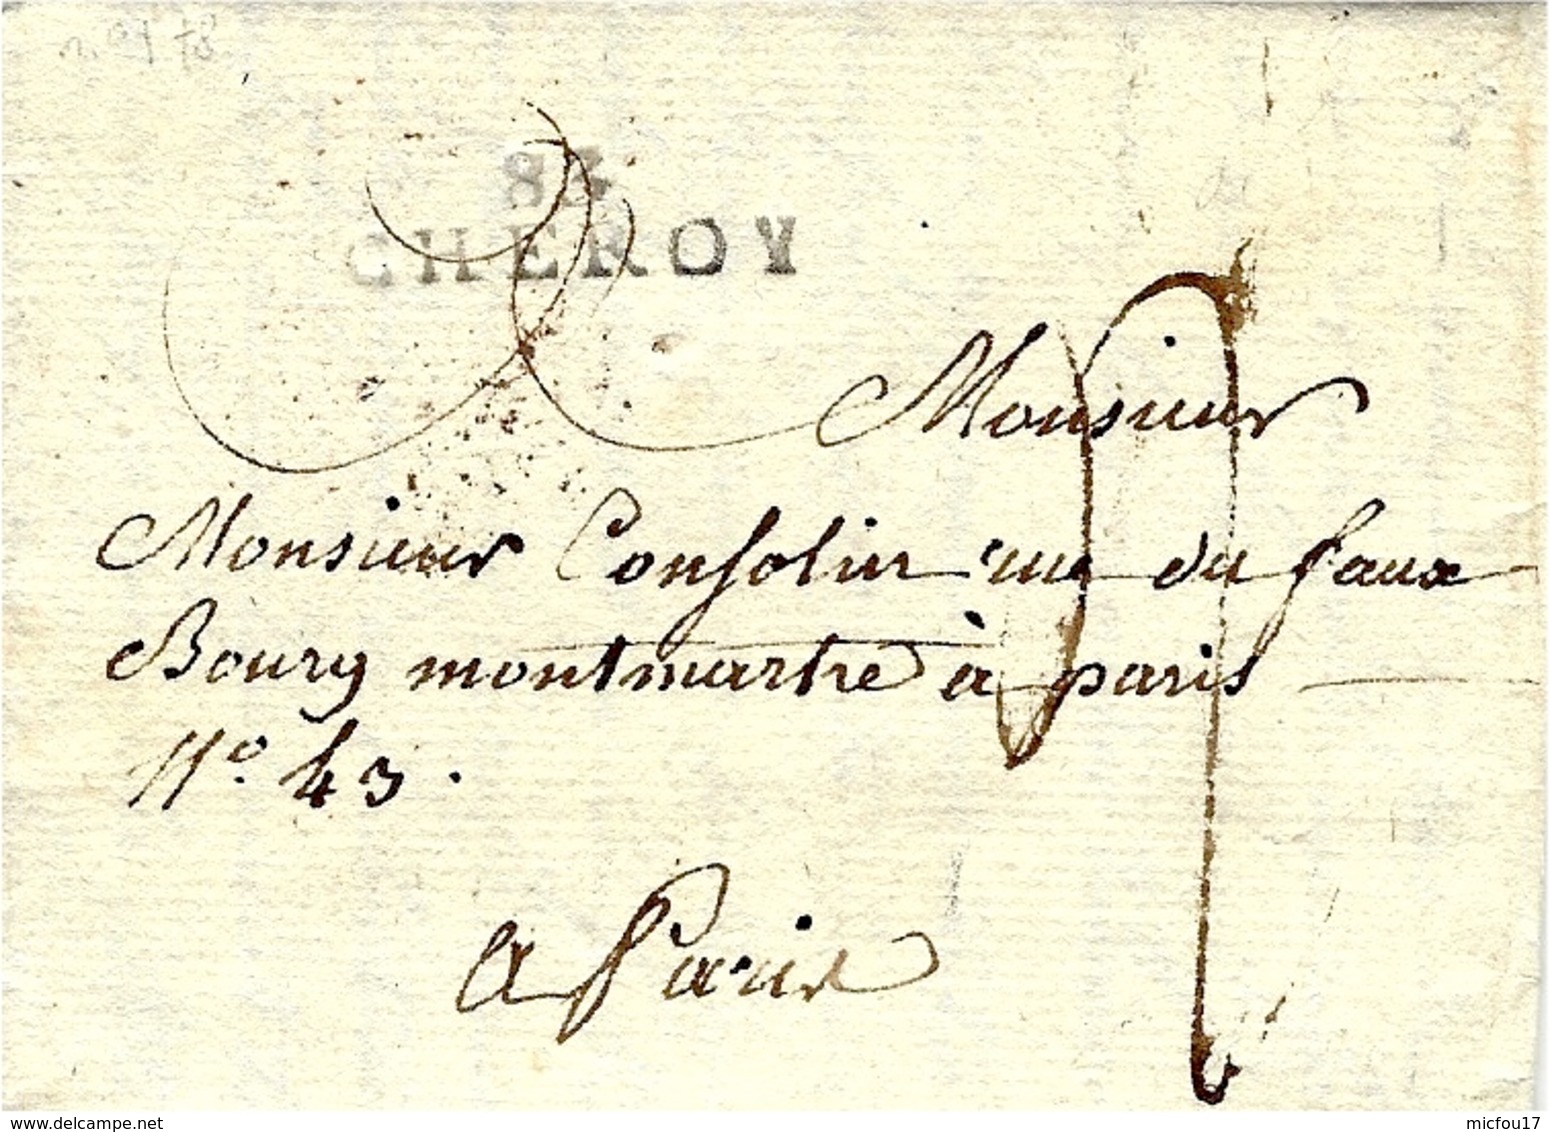 83
CHEROY
Monsieur
Monsieur Consolin rue du faux
Bourg montmartre à paris
N° 43.
A Paris
delcampe.net
micfou17